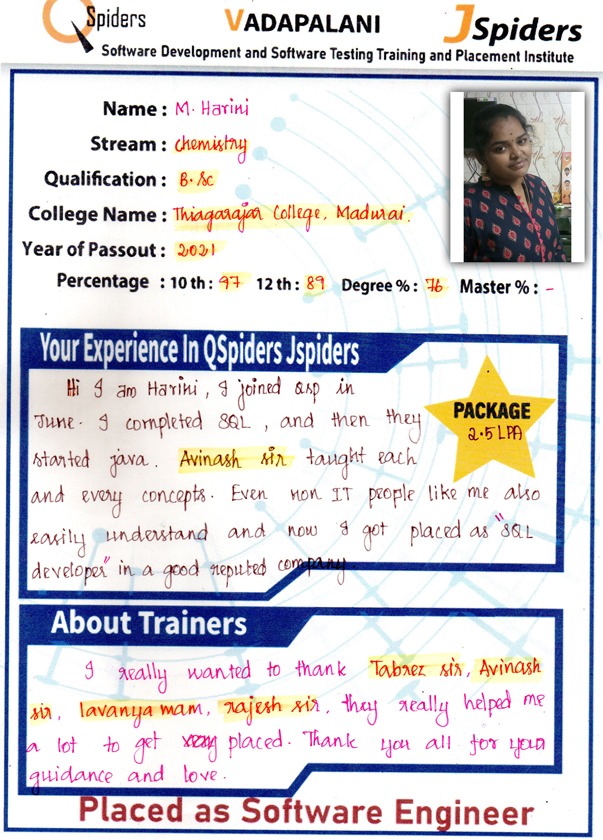 QSpiders VADAPALANI JSpiders
Software Development and Software Testing Training and Placement Institute
Name : M. Harini
Stream : chemistry
Qualification : B.Sc
College Name : Thiagarajar College, Madurai.
Year of Passout : 2021
Percentage : 10 th : 97 12 th : 89 Degree % : 76 Master % : -
Your Experience In QSpiders Jspiders
Hi I am Harini, I joined Qsp in
June. I completed SQL, and then they
started java. Avinash sir taught each
and every concepts. Even non IT people like me also
easily understand and now I got placed as "SQL
developer" in a good reputed company
PACKAGE
2.5 LPA
About Trainers
I really wanted to thank Tabrez sir, Avinash
sir, lavanya mam, rajesh sir, they really helped me
a lot to get placed. Thank you all for your
guidance and love.
Placed as Software Engineer